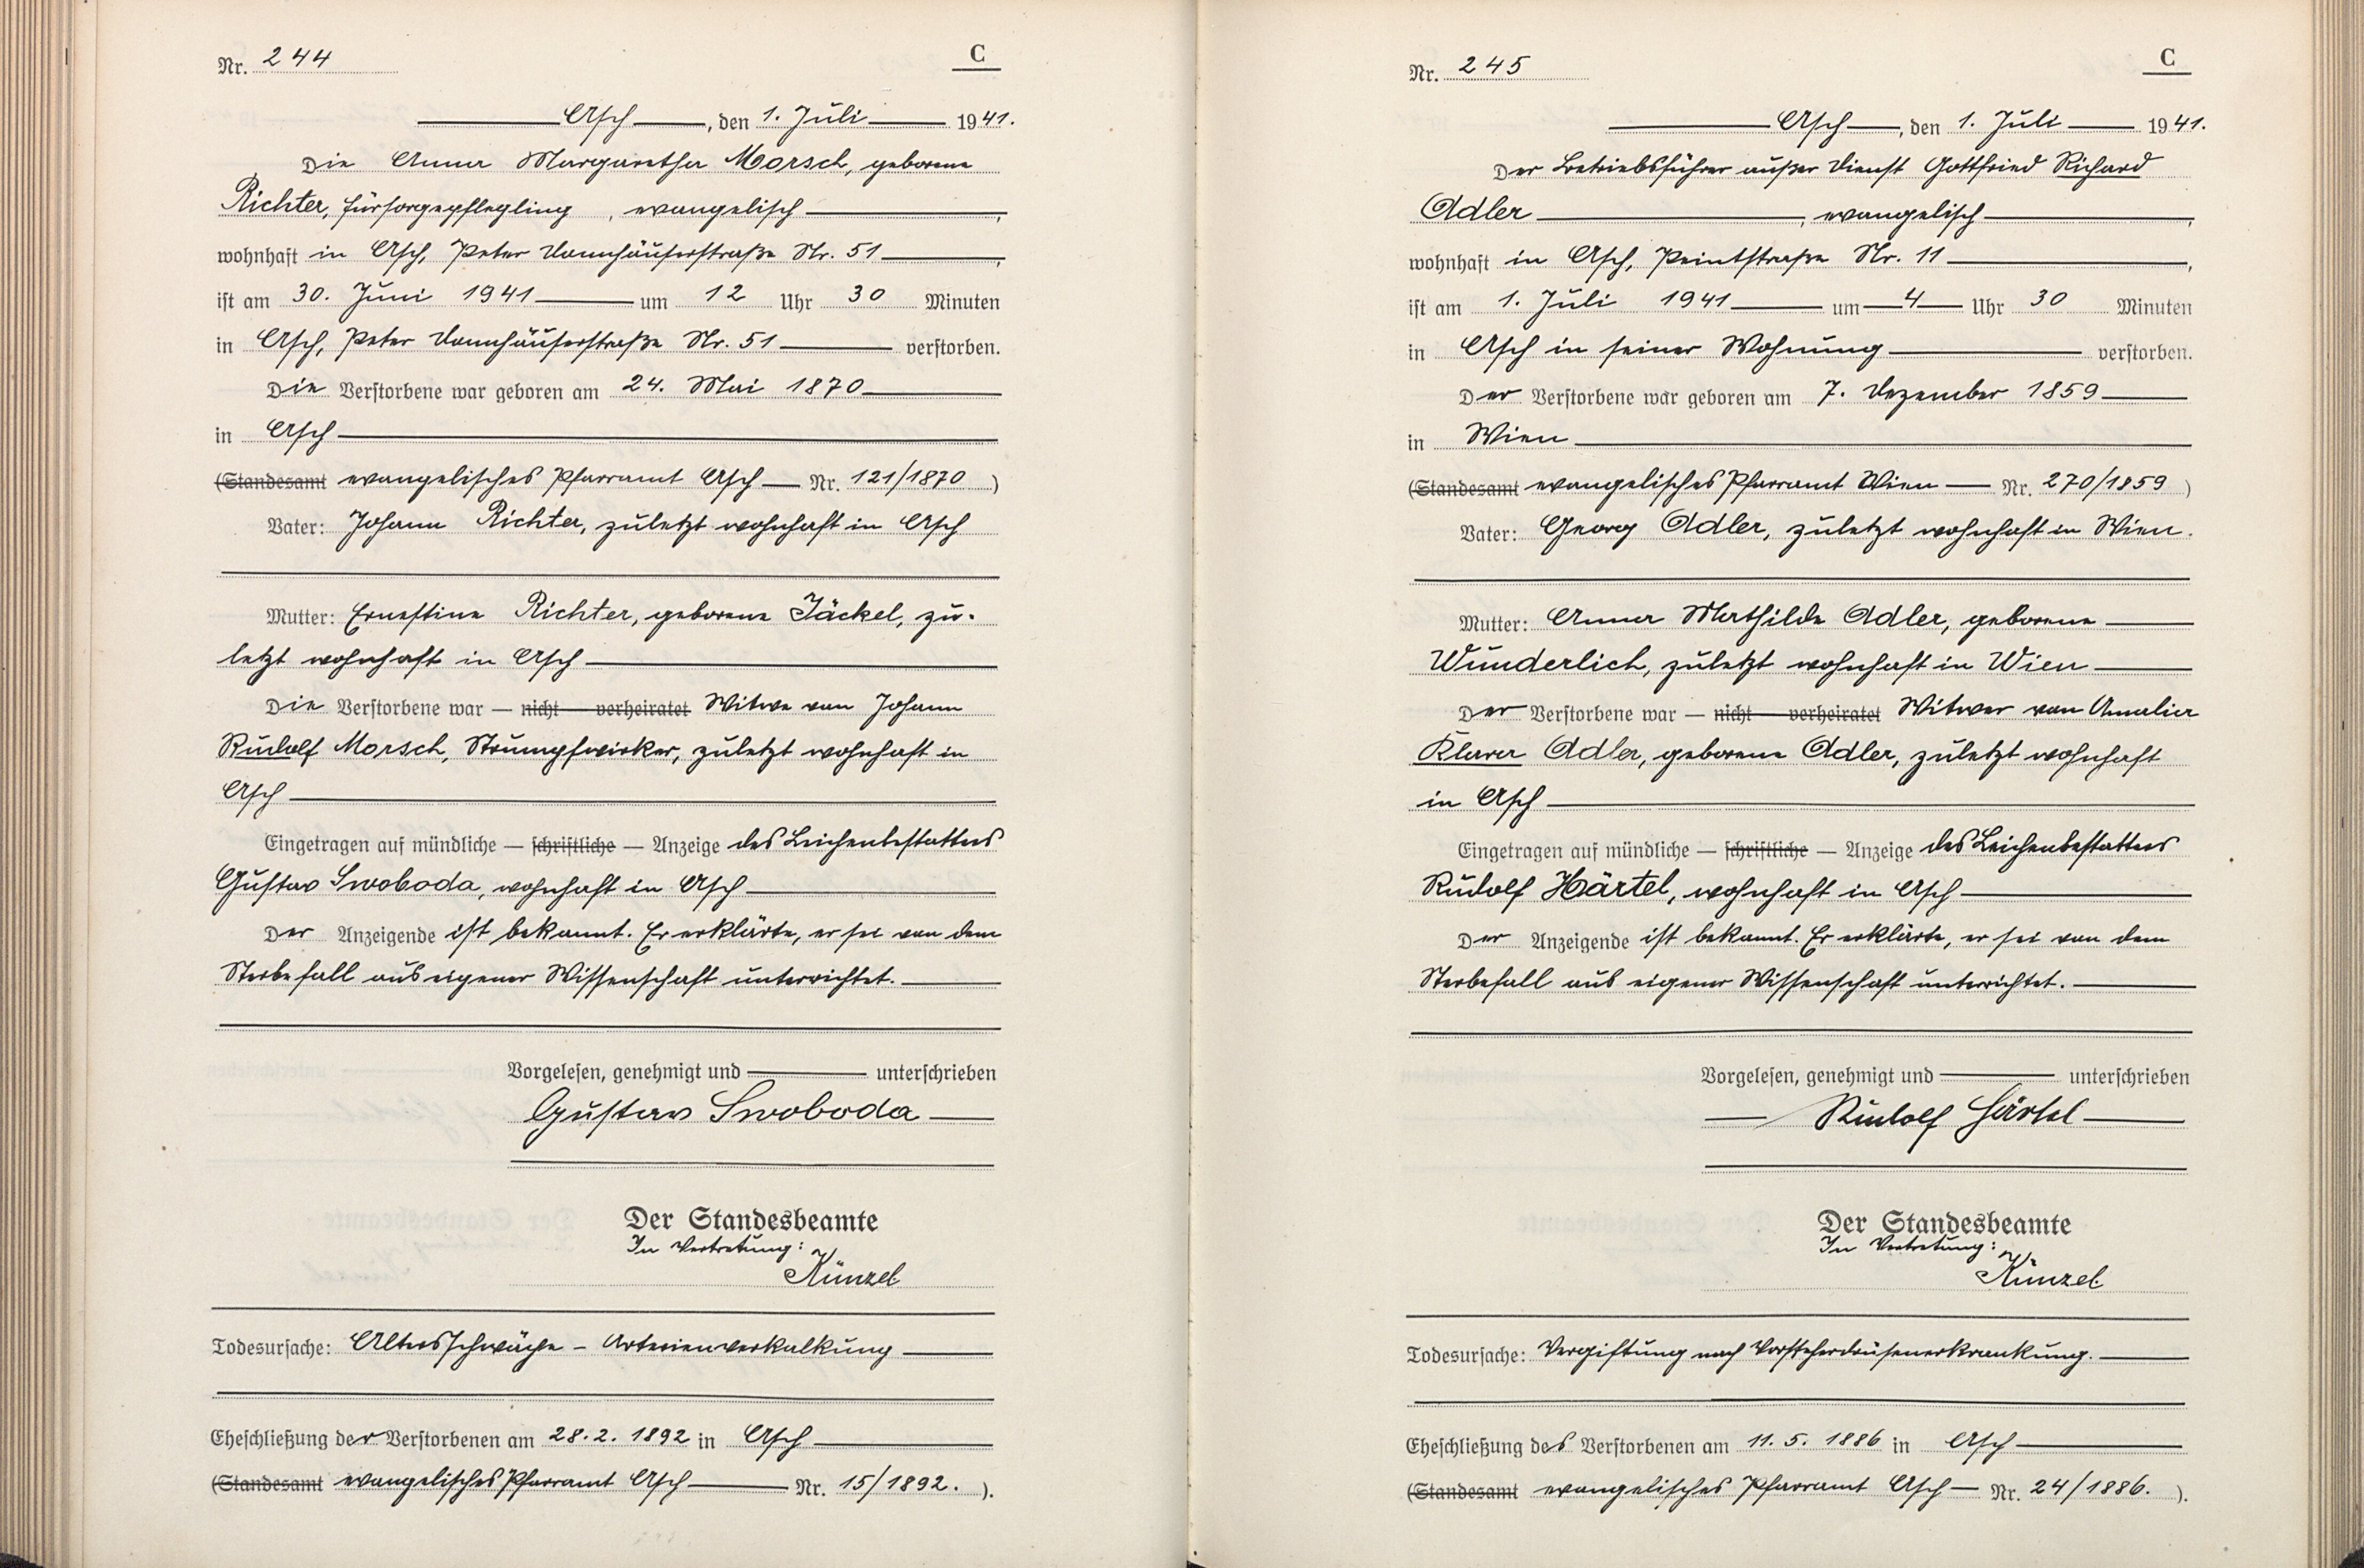 Nr. 244
C
Asch, den 1. Juli 1941.
Die Anna Margaretha Morsch, geborene
Richter, Fürsorgepflegling, evangelisch,
wohnhaft in Asch, Peter Donnhäuserstraße Nr. 51,
ist am 30. Juni 1941 um 12 Uhr 30 Minuten
in Asch, Peter Donnhäuserstraße Nr. 51 verstorben.
Die Verstorbene war geboren am 24. Mai 1870
in Asch
(Standesamt evangelisches Pfarramt Asch Nr. 121/1870)
Vater: Johann Richter, zuletzt wohnhaft in Asch
Mutter: Ernestine Richter, geborene Jäckel, zu-
letzt wohnhaft in Asch
Die Verstorbene war — nicht — verheiratet Witwe von Johann
Rudolf Morsch, Strumpfwirker, zuletzt wohnhaft in
Asch
Eingetragen auf mündliche — schriftliche — Anzeige des Leichenbestatters
Gustav Swoboda, wohnhaft in Asch
Der Anzeigende ist bekannt. Er erklärte, er sei von dem
Sterbefall aus eigener Wissenschaft unterrichtet.
Vorgelesen, genehmigt und unterschrieben
Gustav Swoboda
Der Standesbeamte
In Vertretung:
Künzel
Todesursache: Altersschwäche - Arterienverkalkung
Eheschließung der Verstorbenen am 28.2.1892 in Asch
(Standesamt evangelisches Pfarramt Asch Nr. 15/1892.).
Nr. 245
C
Asch, den 1. Juli 1941.
Der Betriebsführer außer Dienst Gottfried Richard
Adler, evangelisch,
wohnhaft in Asch, Peintstraße Nr. 11,
ist am 1. Juli 1941 um 4 Uhr 30 Minuten
in Asch in seiner Wohnung verstorben.
Der Verstorbene war geboren am 7. Dezember 1859
in Wien
(Standesamt evangelisches Pfarramt Wien — Nr. 270/1859)
Vater: Georg Adler, zuletzt wohnhaft in Wien.
Mutter: Anna Mathilde Adler, geborene
Wunderlich, zuletzt wohnhaft in Wien
Der Verstorbene war — nicht — verheiratet Witwer von Amalia
Klara Adler, geborene Adler, zuletzt wohnhaft
in Asch
Eingetragen auf mündliche — schriftliche — Anzeige des Leichenbestatters
Rudolf Härtel, wohnhaft in Asch
Der Anzeigende ist bekannt. Er erklärte, er sei von dem
Sterbefall aus eigener Wissenschaft unterrichtet.
Vorgelesen, genehmigt und unterschrieben
Rudolf Härtel
Der Standesbeamte
In Vertretung:
Künzel
Todesursache: Vergiftung nach Vorsteherdrüsenerkrankung.
Eheschließung des Verstorbenen am 11.5.1886 in Asch
(Standesamt evangelisches Pfarramt Asch — Nr. 24/1886.).